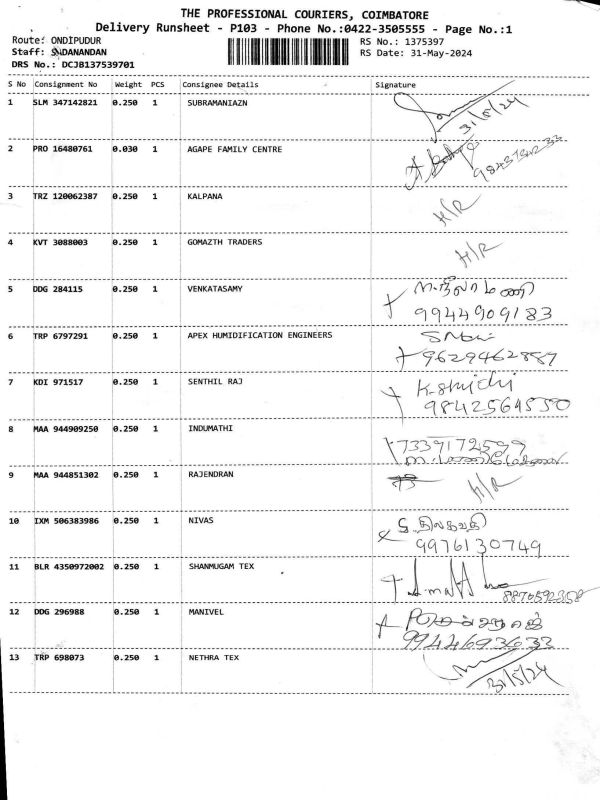 THE PROFESSIONAL COURIERS, COIMBATORE
Delivery Runsheet - P103 - Phone No.:0422-3505555 - Page No.:1
Route: ONDIPUDUR RS No.: 1375397
Staff: SADANANDAN RS Date: 31-May-2024
DRS No.: DCJB137539701
S No Consignment No Weight PCS Consignee Details Signature
1 SLM 347142821 0.250 1 SUBRAMANIAZN
31/5/24
2 PRO 16480761 0.030 1 AGAPE FAMILY CENTRE
3 TRZ 120062387 0.250 1 KALPANA H/R
4 KVT 3088003 0.250 1 GOMAZTH TRADERS H/R
5 DDG 284115 0.250 1 VENKATASAMY
9944909183
6 TRP 6797291 0.250 1 APEX HUMIDIFICATION ENGINEERS
9629462887
7 KDI 971517 0.250 1 SENTHIL RAJ
9842564550
8 MAA 944909250 0.250 1 INDUMATHI
7339172599
9 MAA 944851302 0.250 1 RAJENDRAN H/R
10 IXM 506383986 0.250 1 NIVAS
9976130749
11 BLR 4350972002 0.250 1 SHANMUGAM TEX
12 DDG 296988 0.250 1 MANIVEL
9944693633
13 TRP 698073 0.250 1 NETHRA TEX
31/5/24